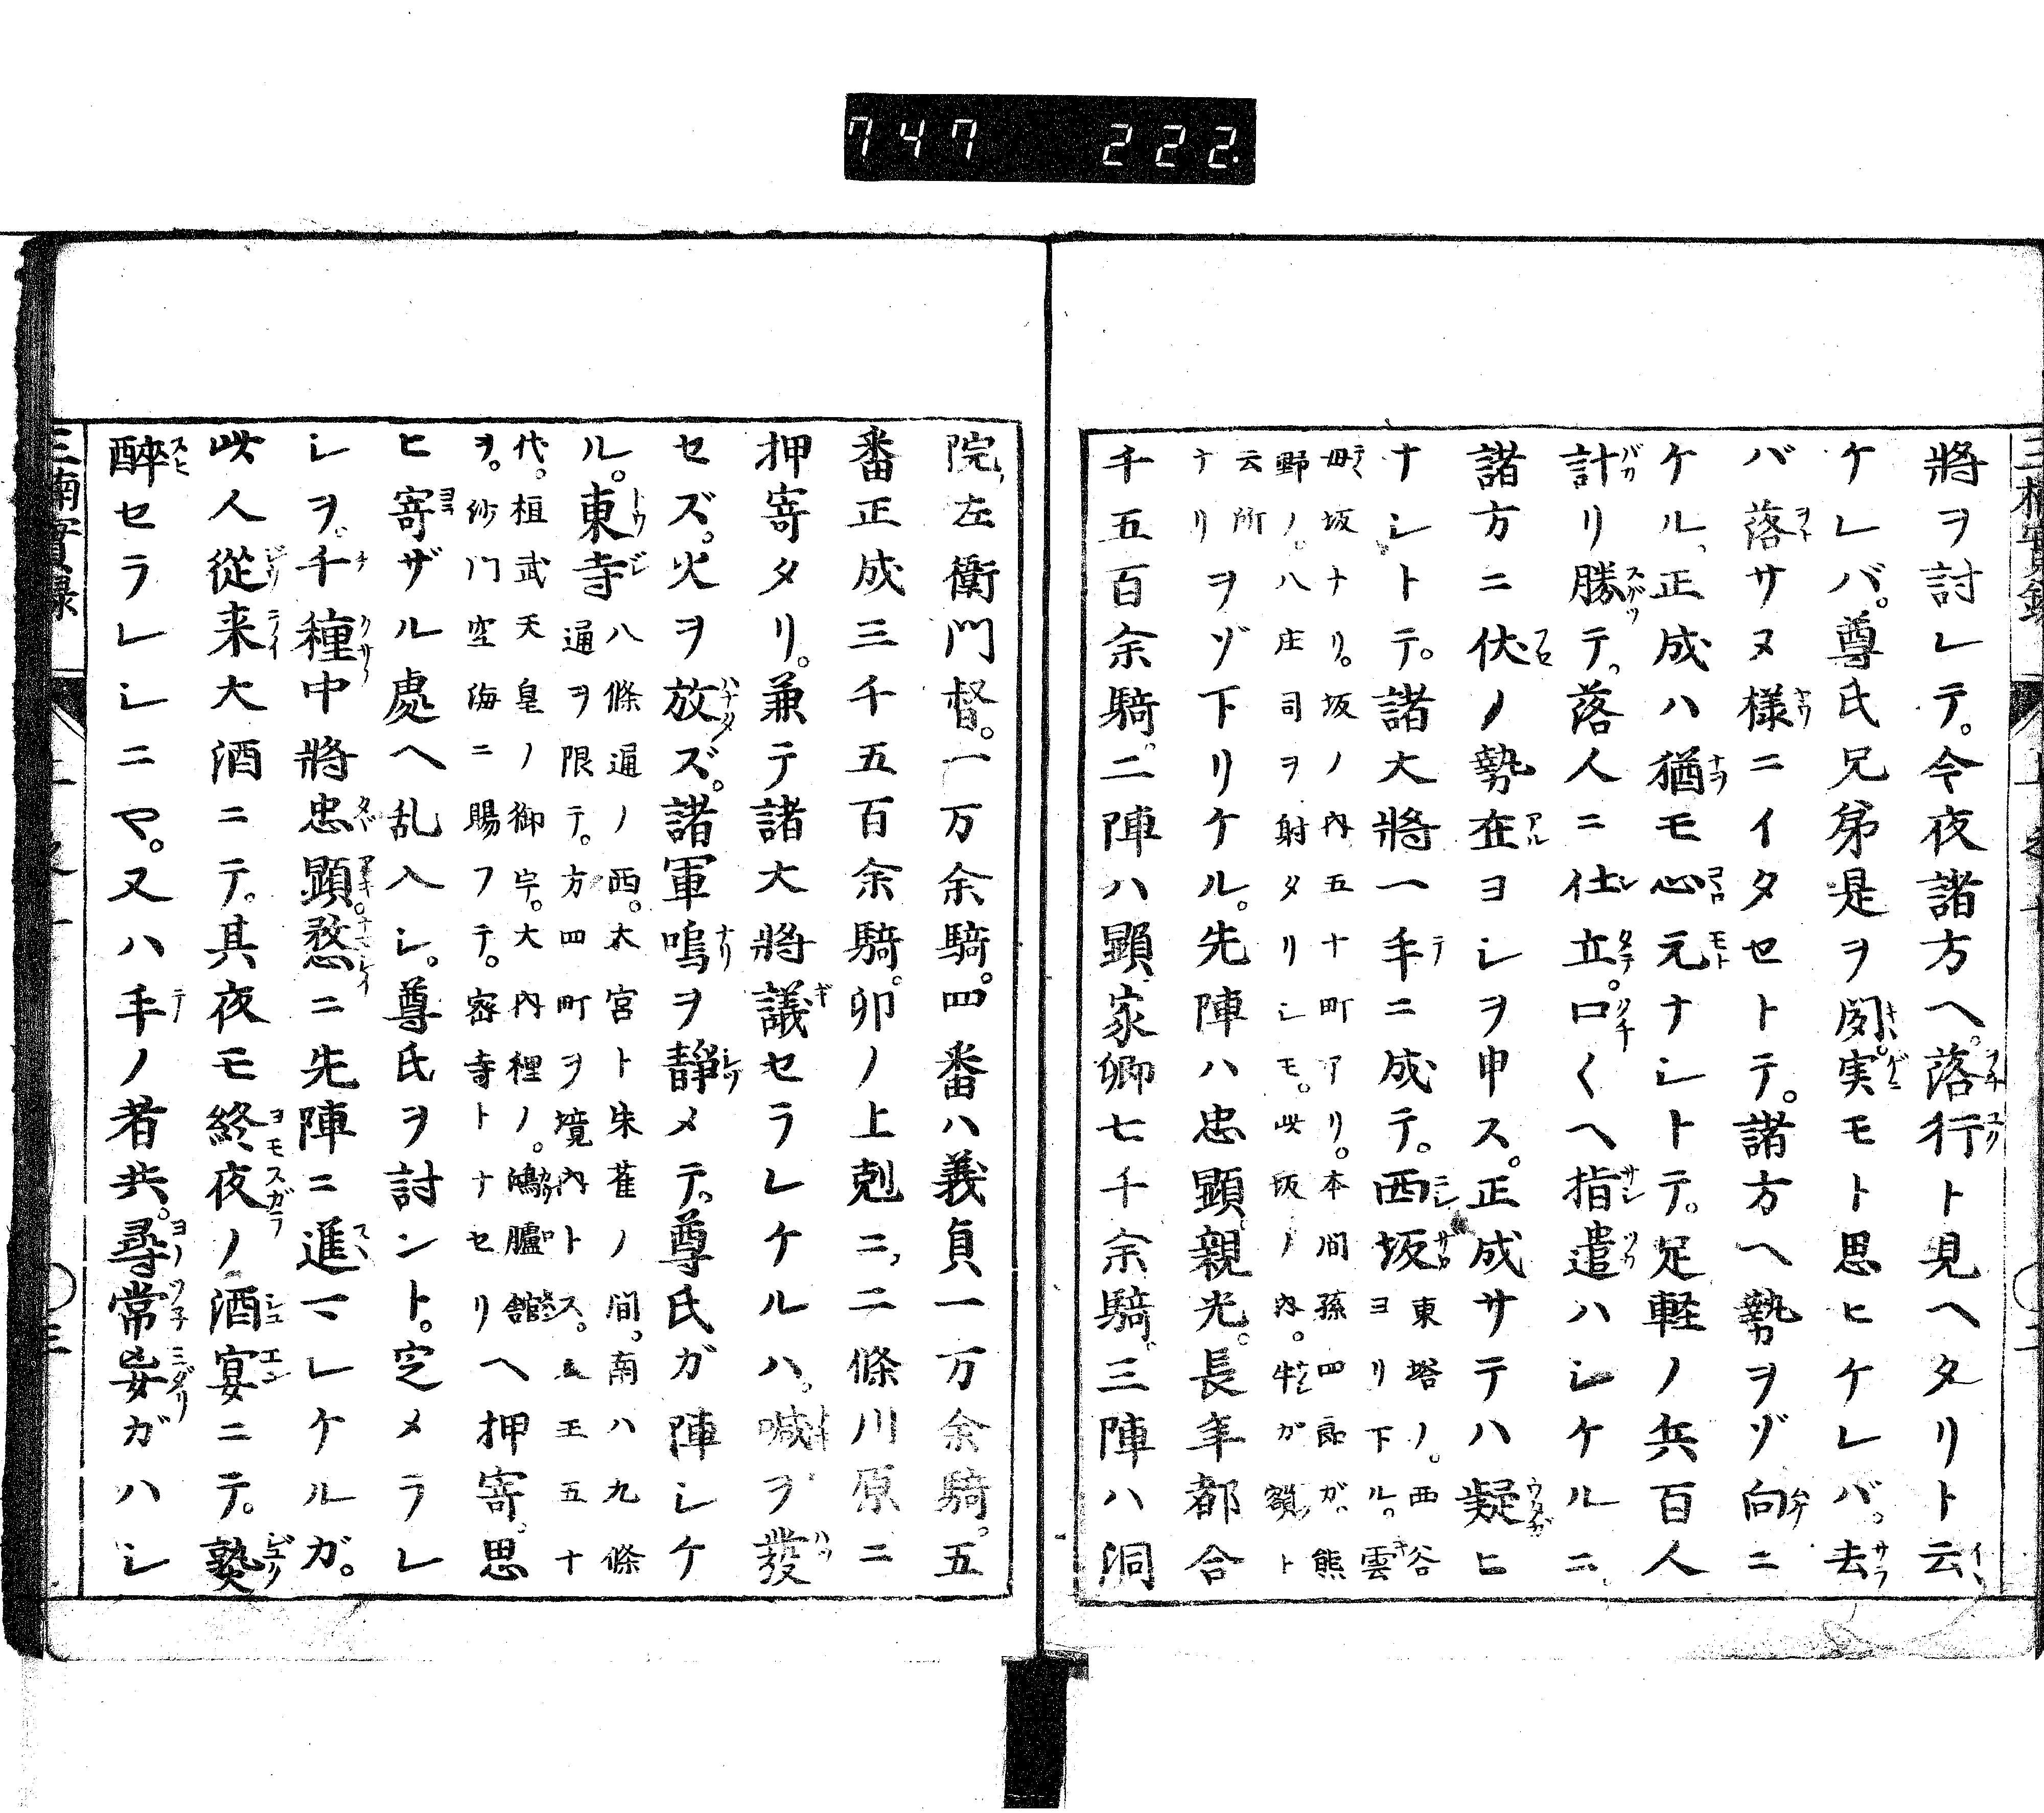 747 222.
將ヲ討レテ。今夜諸方へ。落行ト見ヘタリト云
ケレバ。尊氏兄弟是ヲ聞。実モト思ヒケレバ。去
バ落サヌ様ニイタセトテ。諸方ヘ勢ヲゾ向ニ
ケル、正成ハ猶モ心元ナシトテ。足軽ノ兵百人
計リ勝テ。落人ニ仕立。口〱ヘ指遣ハシケルニ
諸方ニ伏ノ勢在ヨシヲ申ス。正成サテハ疑ヒ
ナシトテ。諸大將一手ニ成テ。西坂
東塔ノ。西谷
ヨリ下ル。雲
母坂ナリ。坂ノ内五十町アリ。本間孫四郎ガ。熊
野ノ。八庄司ヲ射タリシモ。此坂ノ内。牛ガ額ト
云所
ナリ
ヲゾ下リケル。先陣ハ忠顕親光。長年都合
千五百余騎。二陣ハ顕家卿七千余騎。三陣ハ洞
院、左衛門督。一万余騎。四番ハ義貞一万余騎。五
番正成三千五百余騎。卯ノ上剋ニ、二條川原ニ
押寄タリ。兼テ諸大將議セラレケルハ。喊ヲ發
セズ。火ヲ放ズ。諸軍鳴ヲ静メテ。尊氏ガ陣シケ
ル。東寺
八條通ノ西。大宮ト朱雀ノ間。南ハ九條
通ヲ限テ。方四町ヲ境内トス。王五十
代。桓武天皇ノ御宇。大内裡ノ。鴻臚舘
ヲ。沙門空海ニ賜フテ。密寺トナセリ
ヘ押寄。思
ヒ寄ザル處ヘ乱入シ。尊氏ヲ討ント。定メラレ
シヲ。千種中將忠顕。憖ニ先陣ニ進マレケルガ。
此人從来大酒ニテ。其夜モ終夜ノ酒宴ニテ。熟
醉セラレシニヤ。又ハ手ノ者共。尋常妄ガハシ